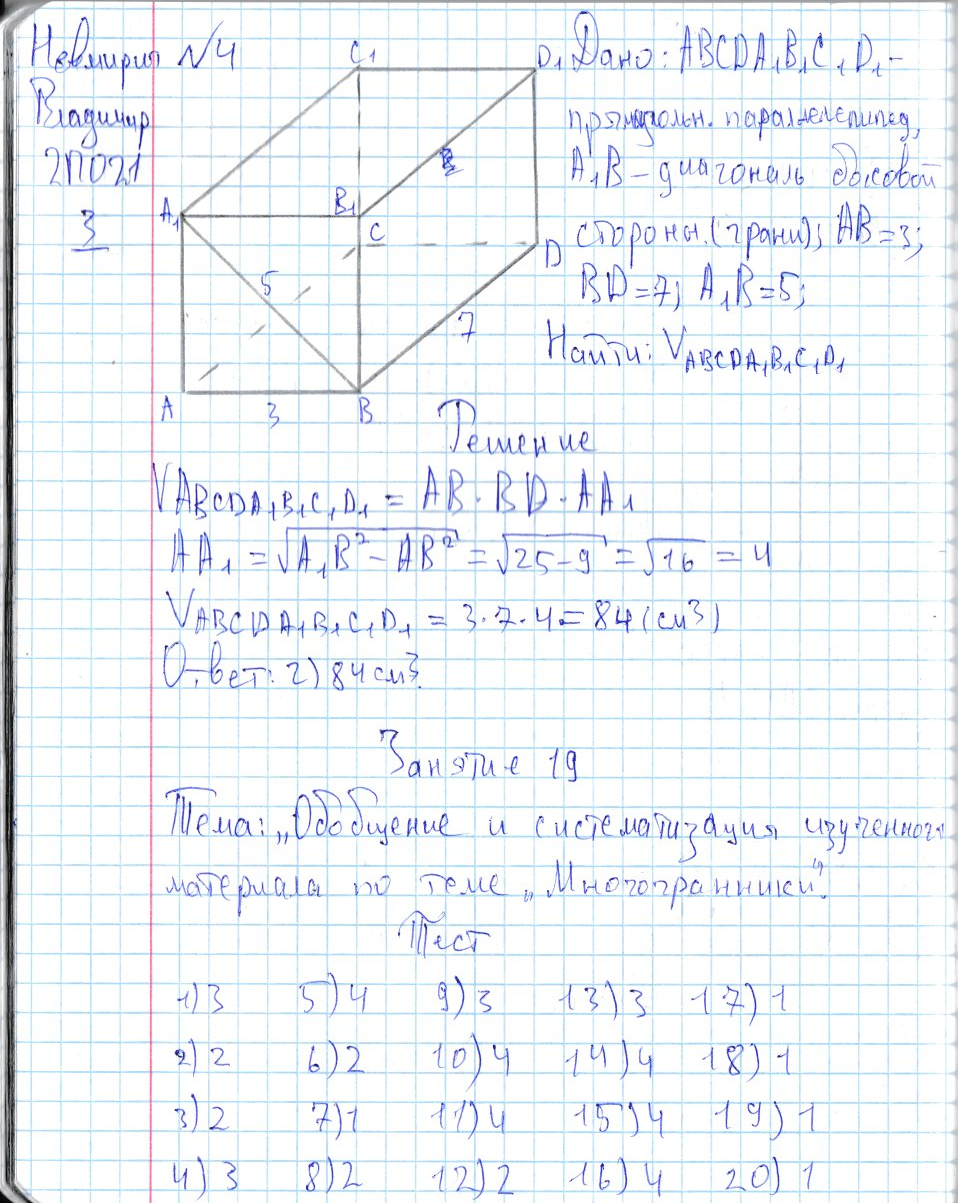 Невмирич №4
Владимир
2П021
3
C₁
D₁
A₁
B₁
C
D
5
7
A
3
B
Дано: ABCDA₁B₁C₁D₁ –
прямоугольн. параллелепипед,
A₁B – диагональ боковой
стороны (грани); AB = 3;
BD = 7; A₁B = 5;
Найти: V ABCDA₁B₁C₁D₁
Решение
V ABCDA₁B₁C₁D₁ = AB · BD · AA₁
AA₁ = √A₁B² – AB² = √25 – 9 = √16 = 4
V ABCDA₁B₁C₁D₁ = 3 · 7 · 4 = 84 (см³)
Ответ: 2) 84 см³.
Занятие 19
Тема: „Обобщение и систематизация изученного
материала по теме „Многогранники".
Тест
1) 3 5) 4 9) 3 13) 3 17) 1
2) 2 6) 2 10) 4 14) 4 18) 1
3) 2 7) 1 11) 4 15) 4 19) 1
4) 3 8) 2 12) 2 16) 4 20) 1